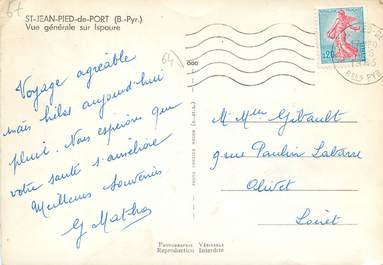 67
ST-JEAN-PIED-de-PORT (B.-Pyr.)
Vue générale sur Ispoure
64
0,20
Bses PYR
Voyage agréable
mais hélas aujourd'hui
pluie. Nous espérons que
votre santé s'améliore
Meilleurs Souvenirs
G Matho
Mr Mme Gibault
9 rue Paulin Labarre
Olivet
Loiret
PHOTOGRAPHIE VÉRITABLE
Reproduction Interdite